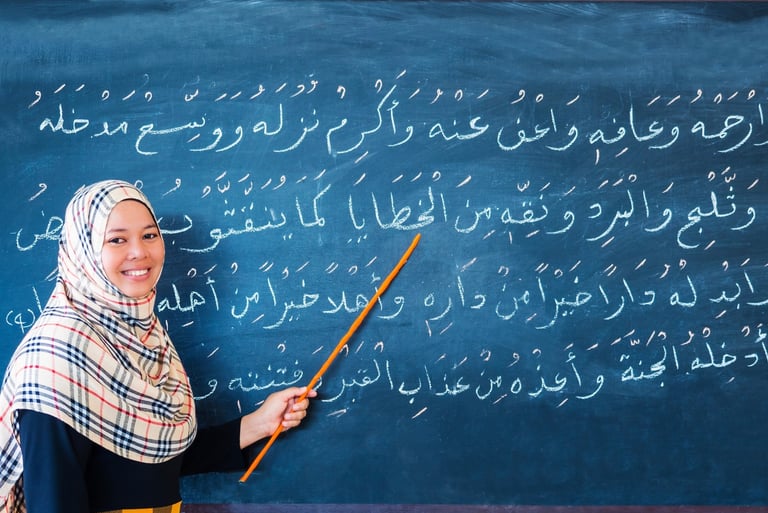 ارْحَمْهُ وَعَافِهِ وَاعْفُ عَنْهُ وَأَكْرِمْ نُزُلَهُ وَوَسِّعْ مُدْخَلَهُ
وَثَلْجٍ وَالْبَرَدِ وَنَقِّهِ مِنَ الْخَطَايَا كَمَا
لَهُ دَارًا خَيْرًا مِنْ دَارِهِ وَأَهْلًا خَيْرًا مِنْ أَهْلِهِ
أَدْخِلْهُ الْجَنَّةَ وَأَعِذْهُ مِنْ عَذَابِ الْقَبْرِ